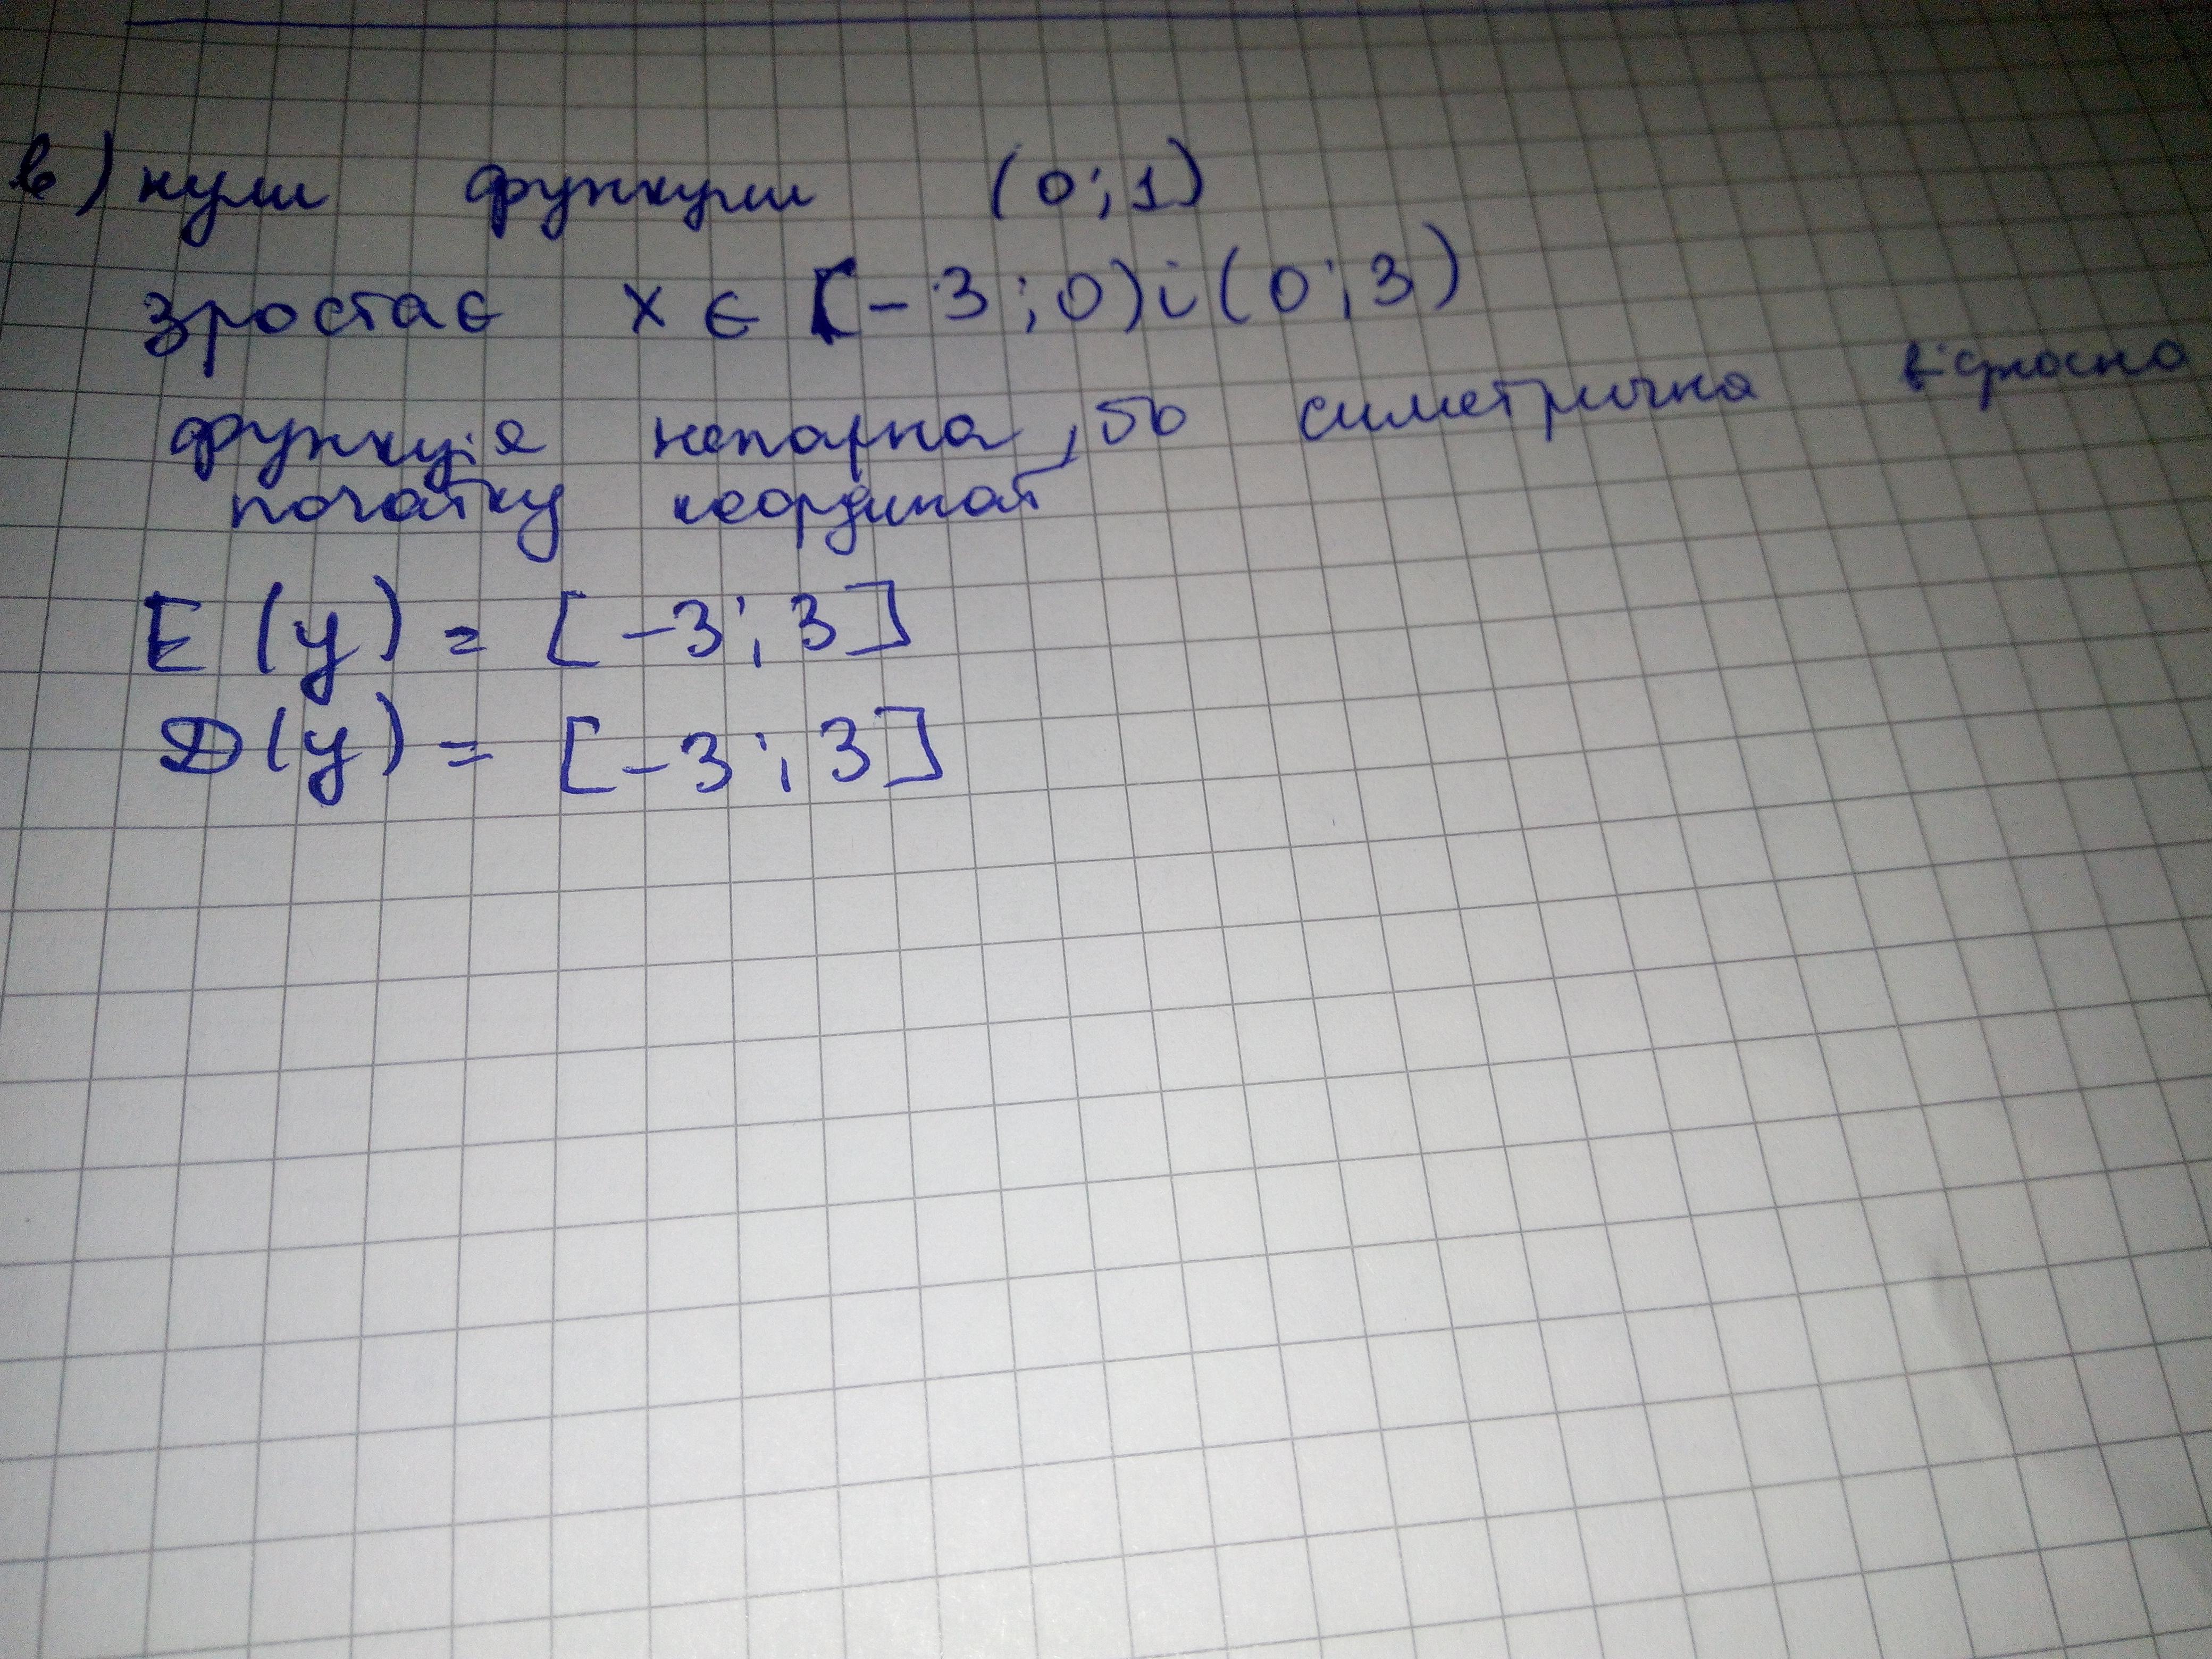 в) нулі функції (0;1)
зростає x ∈ [-3;0) і (0;3)
функція непарна, бо симетрична відносно
початку координат
E(y) = [-3;3]
D(y) = [-3;3]